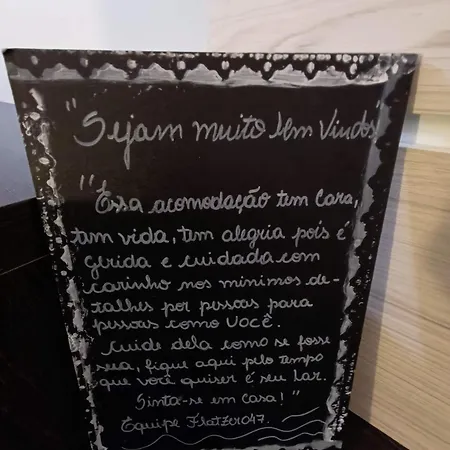 "Sejam muito bem Vindos
"Essa acomodação tem cara,
tem vida, tem alegria pois é
gerida e cuidada com
carinho nos minimos de-
talhes por pessoas para
pessoas como VOCÊ.
Cuide dela como se fosse
sua, fique aqui pelo tempo
que você quiser é seu lar.
Sinta-se em Casa!"
Equipe FlatZero47.